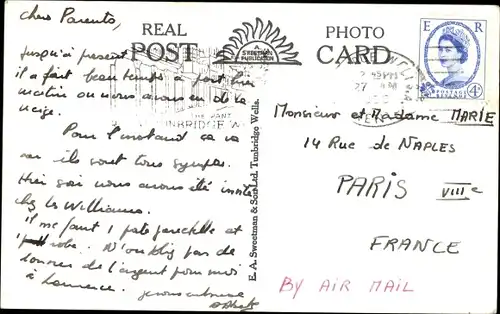 chers Parents,
jusqu'à present
il a fait beau temps à part hier
matin ou nous avons eu de la
neige.
Pour l'instand ça va
car ils sont tous sympas.
Hier soir nous avons été invité
chez les Williams.
il me faut 1 robe. N'oubliez pas de
donner de l'argent pour moi
à Laurence. je vous embrasse
REAL PHOTO
POST CARD
A SWEETMAN PUBLICATION
THE PANT
TUNBRIDGE WELLS
E. A. Sweetman & Son Ltd. Tunbridge Wells.
E R
POSTAGE REVENUE
4D
27
Monsieur et Madame MARIE
14 Rue de NAPLES
PARIS VIIIe
FRANCE
BY AIR MAIL